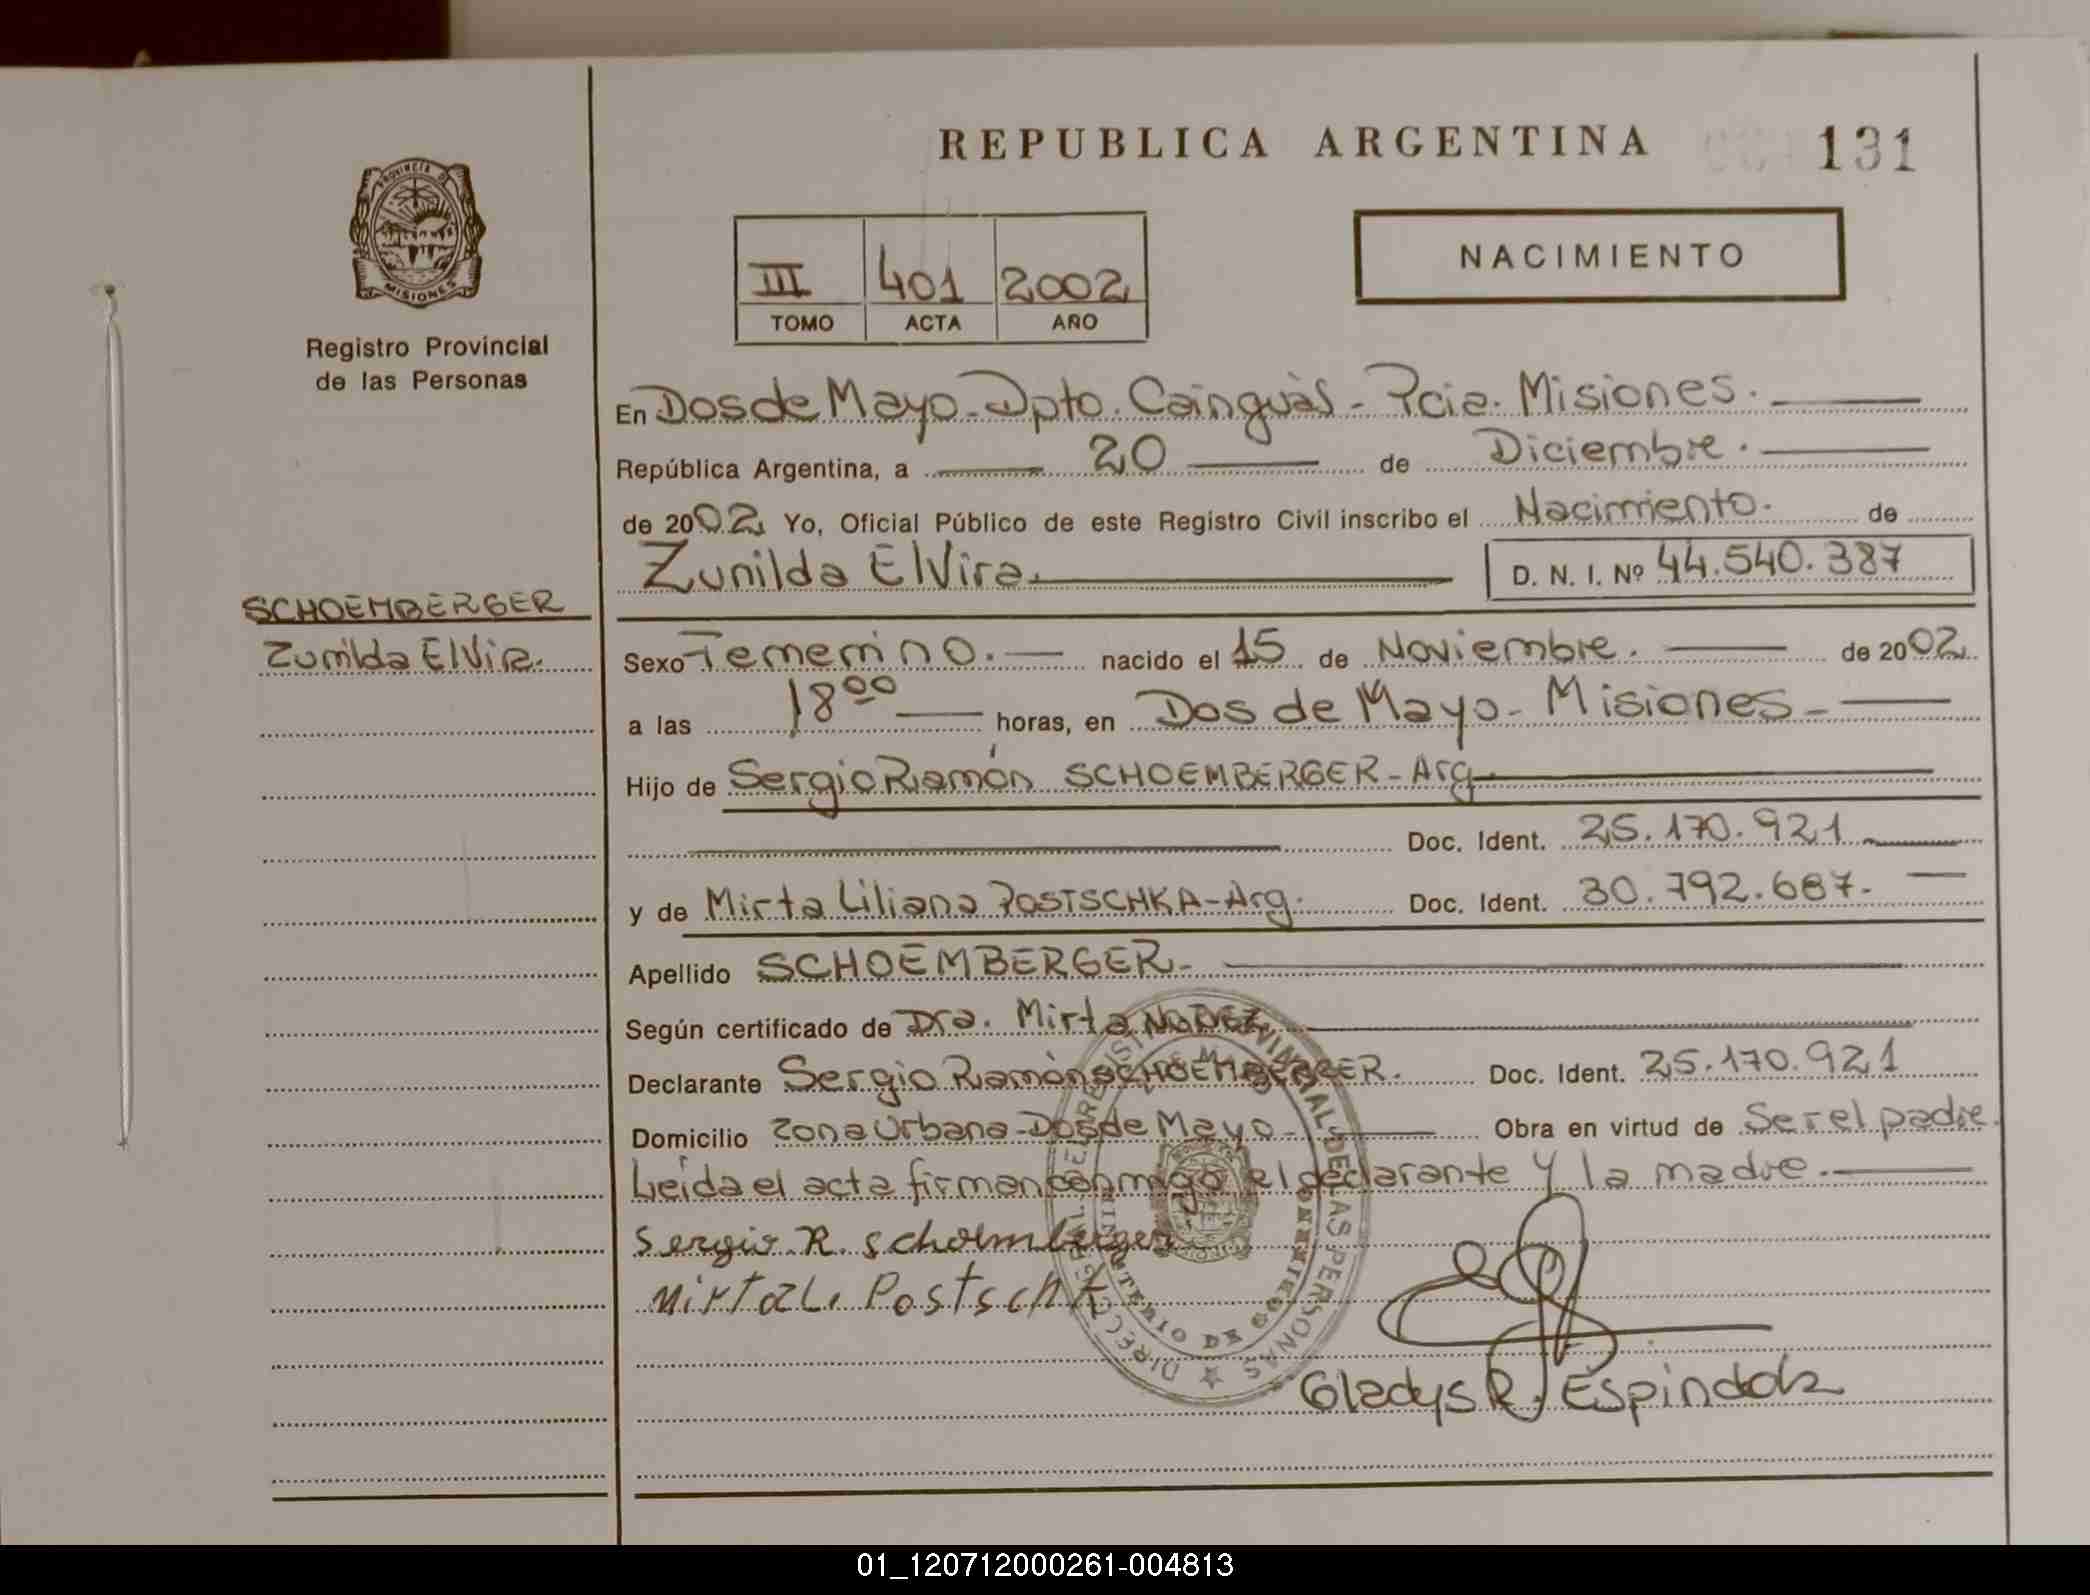 REPUBLICA ARGENTINA
131
PROVINCIA DE
MISIONES
Registro Provincial
de las Personas
III 401 2002
TOMO ACTA AÑO
NACIMIENTO
En Dos de Mayo - Dpto. Cainguàs - Pcia. Misiones.
República Argentina, a 20 de Diciembre.
de 2002 Yo, Oficial Público de este Registro Civil inscribo el Nacimiento. de
Zunilda Elvira. D. N. I. Nº 44.540.387
SCHOEMBERGER
Zunilda Elvira.
Sexo Femenino. nacido el 15 de Noviembre. de 2002.
a las 18 00 horas, en Dos de Mayo - Misiones -
Hijo de Sergio Ramón SCHOEMBERGER - Arg
Doc. Ident. 25.170.921
y de Mirta Liliana POSTSCHKA - Arg. Doc. Ident. 30.792.687.
Apellido SCHOEMBERGER -
Según certificado de Dra. Mirta
Declarante Sergio Ramón SCHOEMBERGER. Doc. Ident. 25.170.921
Domicilio Zona Urbana - Dos de Mayo - Obra en virtud de Ser el padre.
Leída el acta firman conmigo el declarante y la madre.
Sergio R. Schoemberger
Mirta L. Postschk
DIRECC GRAL DEL REGISTRO PROVINCIAL DE LAS PERSONAS
MINISTERIO DE GOBIERNO
Gladys R. Espindola
01_120712000261-004813